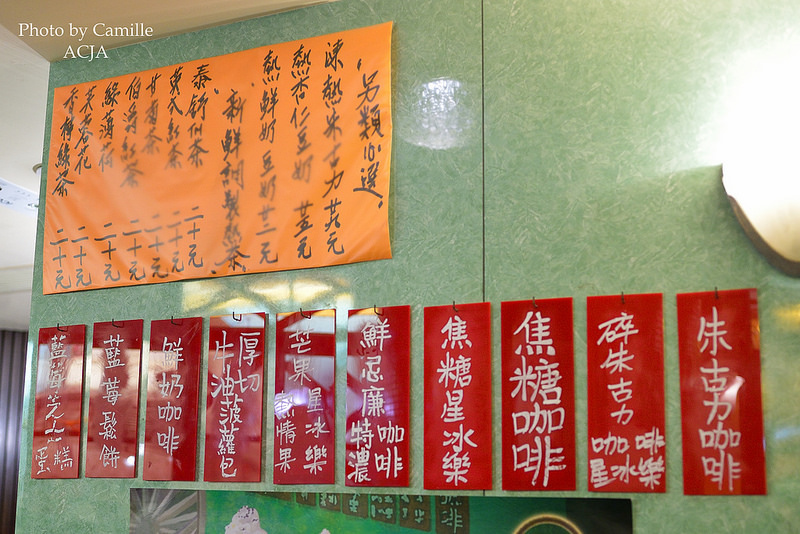 Photo by Camille
ACJA
"另類心選"
凍熱朱古力廿六元
熱杏仁豆奶 廿五元
熱鮮奶 豆奶 廿二元
"新鮮調製熱茶"
泰舒似茶 二十元
英式紅茶 二十元
甘菊茶 二十元
伯爵紅茶 二十元
綠薄荷 二十元
芙蓉花 二十元
香檸綠茶 二十元
朱古力咖啡
碎朱古力
咖啡
星冰樂
焦糖咖啡
焦糖星冰樂
鮮忌廉
特濃
咖啡
芒果
熱情果
星冰樂
厚切
牛油菠蘿包
鮮奶咖啡
藍莓鬆餅
藍莓芝士
蛋糕